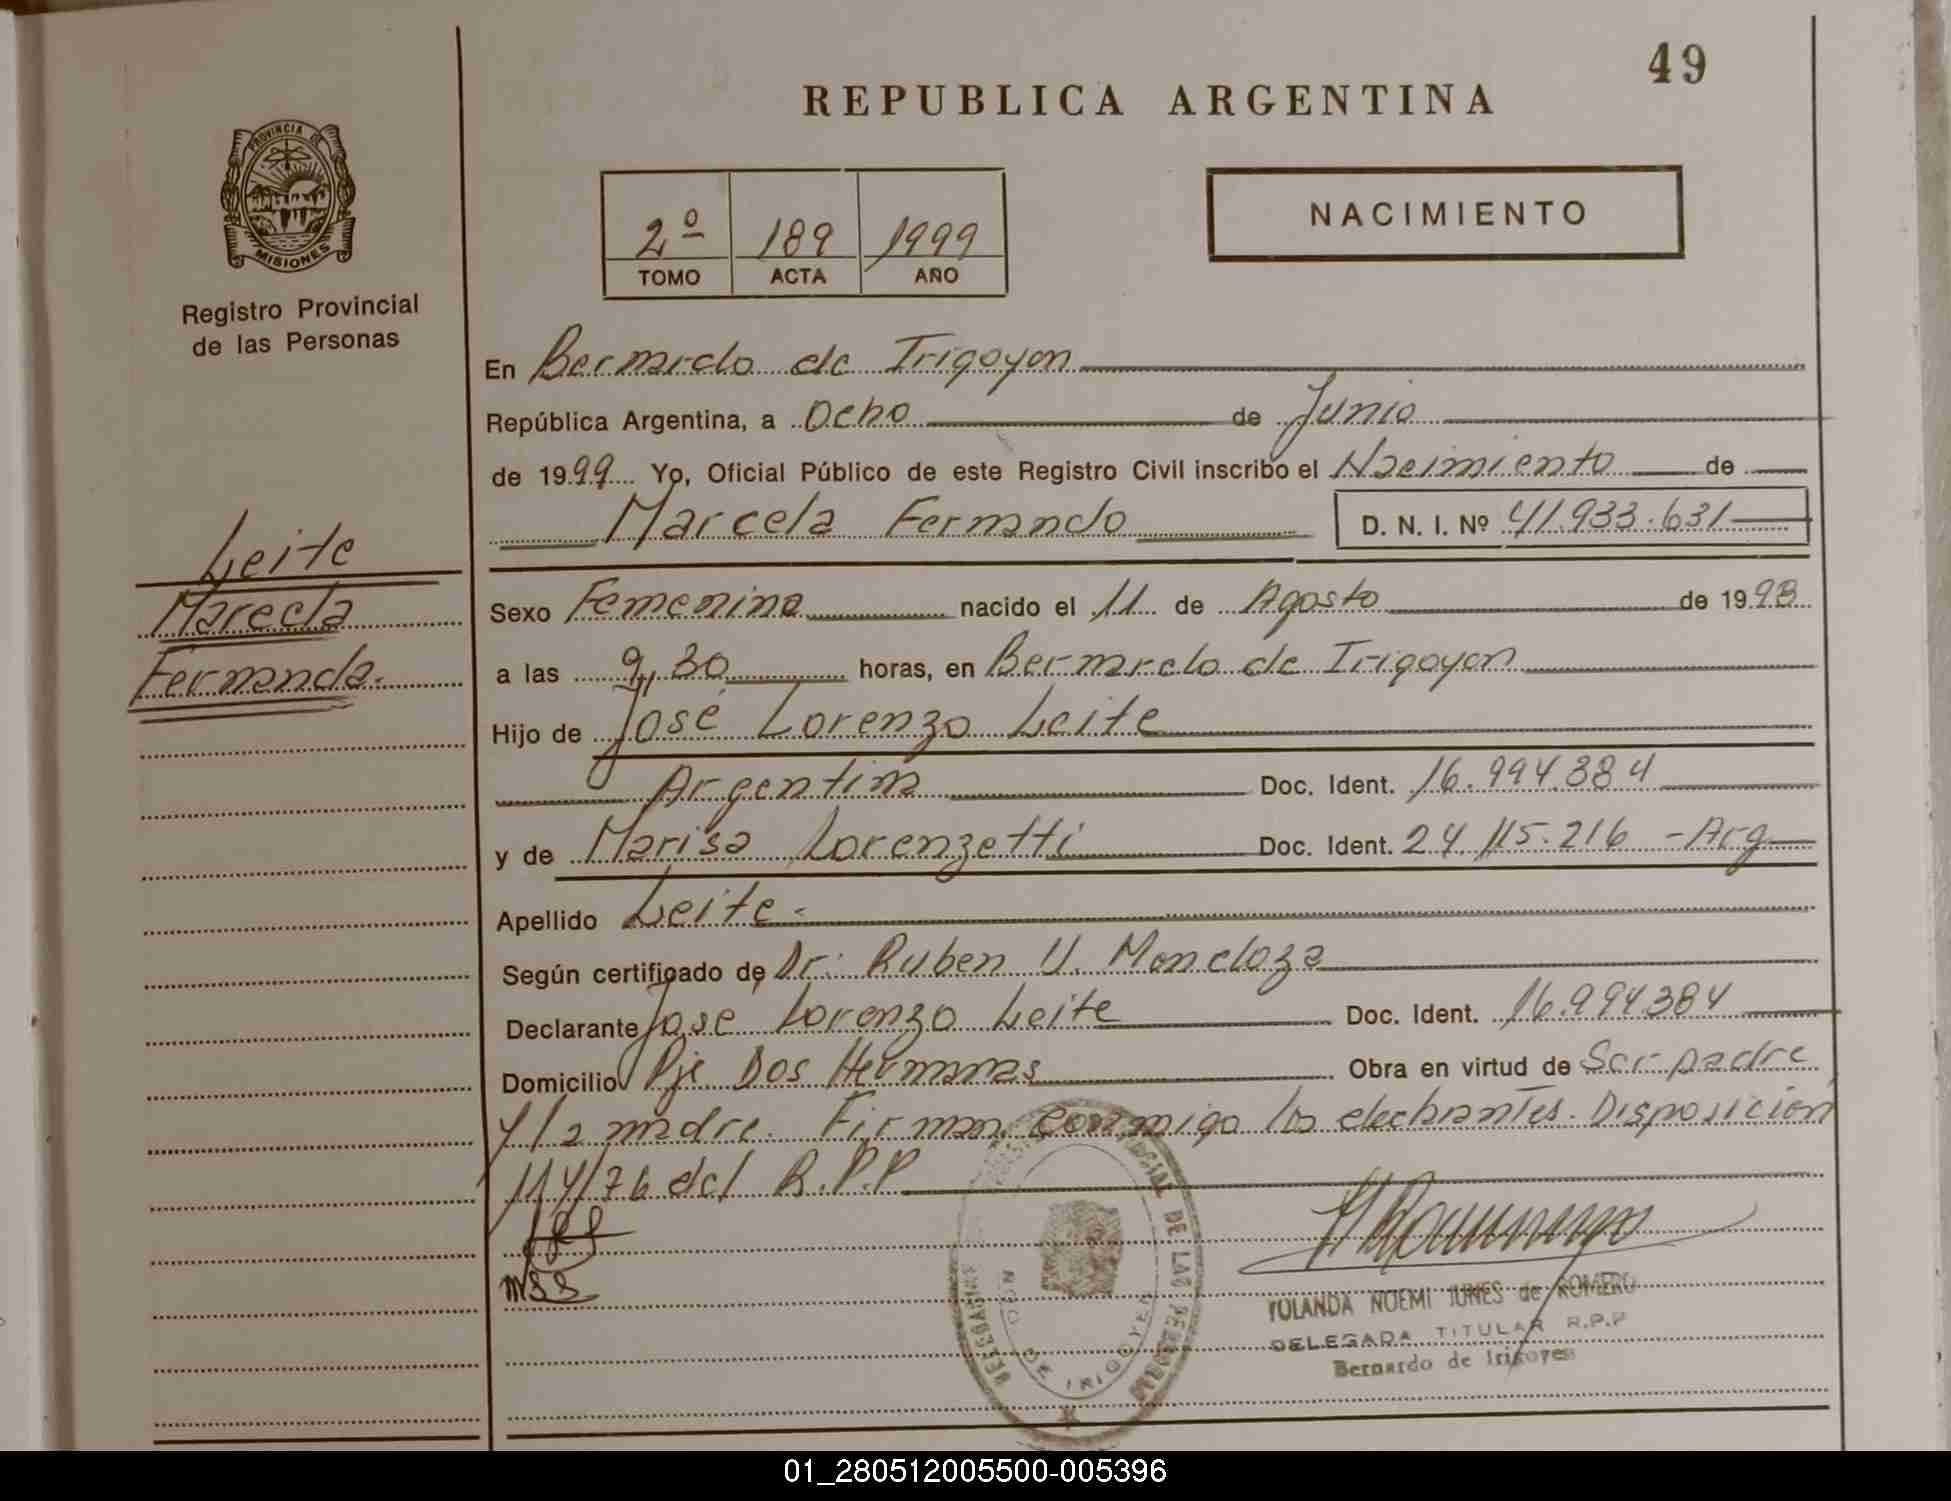 49
REPUBLICA ARGENTINA
PROVINCIA DE
MISIONES
Registro Provincial
de las Personas
2º 189 1999
TOMO ACTA AÑO
NACIMIENTO
En Bernardo de Irigoyen
República Argentina, a Ocho de Junio
de 1999 Yo, Oficial Público de este Registro Civil inscribo el Nacimiento de
Marcela Fernanda D. N. I. Nº 41.933.631
Leite
Marcela
Fernanda.
Sexo Femenino nacido el 11 de Agosto de 1998
a las 9,30 horas, en Bernardo de Irigoyen
Hijo de José Lorenzo Leite
Argentina Doc. Ident. 16.994.384
y de Marisa Lorenzetti Doc. Ident. 24.115.216 - Arg
Apellido Leite -
Según certificado de Dr. Ruben U. Moncloza
Declarante Jose Lorenzo Leite Doc. Ident. 16.994.384
Domicilio Pje Dos Hermanas Obra en virtud de Ser padre
y la madre. Firman conmigo los declarantes. Disposición
114/76 del R.P.P
YOLANDA NOEMI JUNES de ROMERO
DELEGADA TITULAR R.P.P
Bernardo de Irigoyen
DE LAS PERSONAS
DE IRIGOYEN
01_280512005500-005396